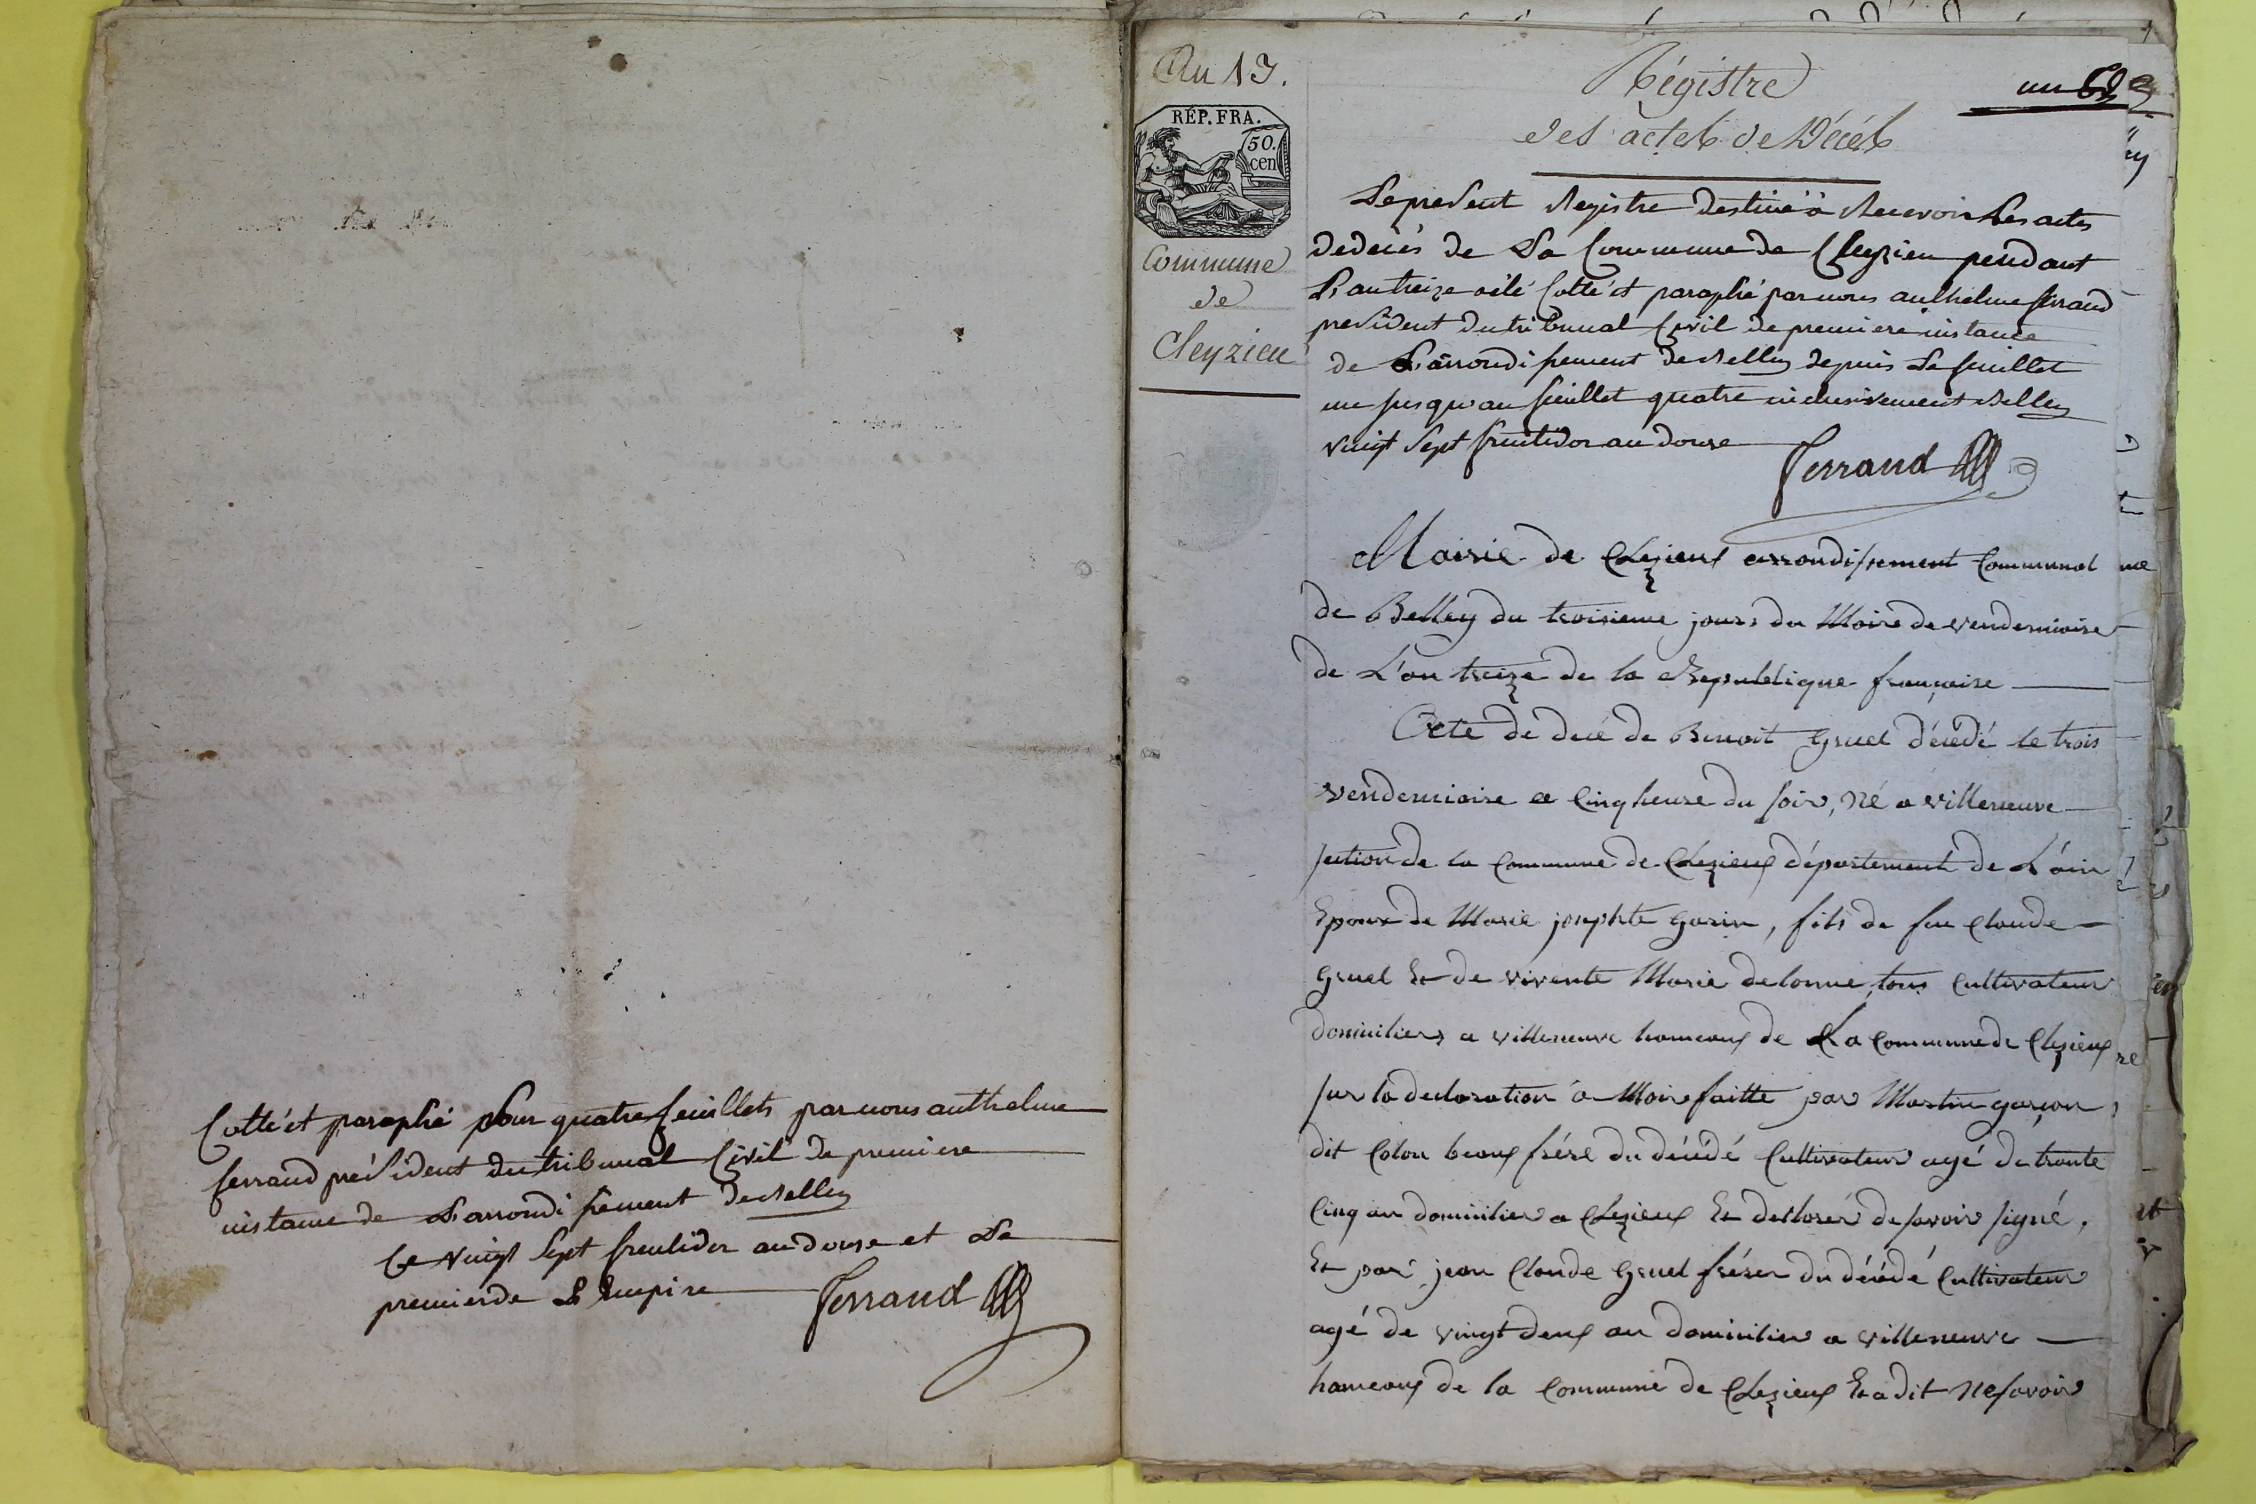 Cotté et paraphé pour quatre feuillets par nous anthelme
ferrand président du tribunal Civil de premiere
instance de L'arrondissement de Belley
Ce vingt Sept fructidor an douse et Le
premier de L'Empire Ferrand
An 13.
RÉP. FRA.
50.
cen
Commune
de
Cleyzieu
Régistre
des actes de Décès
un
Le present Registre destiné à Recevoir Les actes
de decès de La Commune de Cleyzieu pendant
L'an treize a été Cotté et paraphé par nous anthelme ferrand
président du tribunal Civil de premiere instance
de L'arrondissement de Belley depuis Le feuillet
un jusqu'au feuillet quatre inclusivement Belley
vingt Sept fructidor an douse
Ferrand
Mairie de Clezieux arrondissement Communal
de Belley du troisieme jours du Mois de vendemiaire
de L'an treize de la Republique française
Acte de decé de Benoit Gruel décédé le trois
vendemiaire a Cinq heure du soir, Né a villeneuve
section de la Commune de Clezieux département de L'ain
Epoux de Marie josephte Garin, fils de feu Claude
Gruel Et de vivente Marie delorme, tous Cultivateur
domiciliers a villeneuve hameaux de La Commune de Clezieux
sur la declaration a Moi faitte par Martin garçon,
dit Colon beaux frére du décédé Cultivateur agé de trante
Cinq an domicilier a Clezieux Et declarer de savoir signé,
Et par jean Claude Gruel frérer du décédé Cultivateur
agé de vingt deux an domicilier a villeneuve
hameaux de la Commune de Clezieux Et a dit Ne savoir